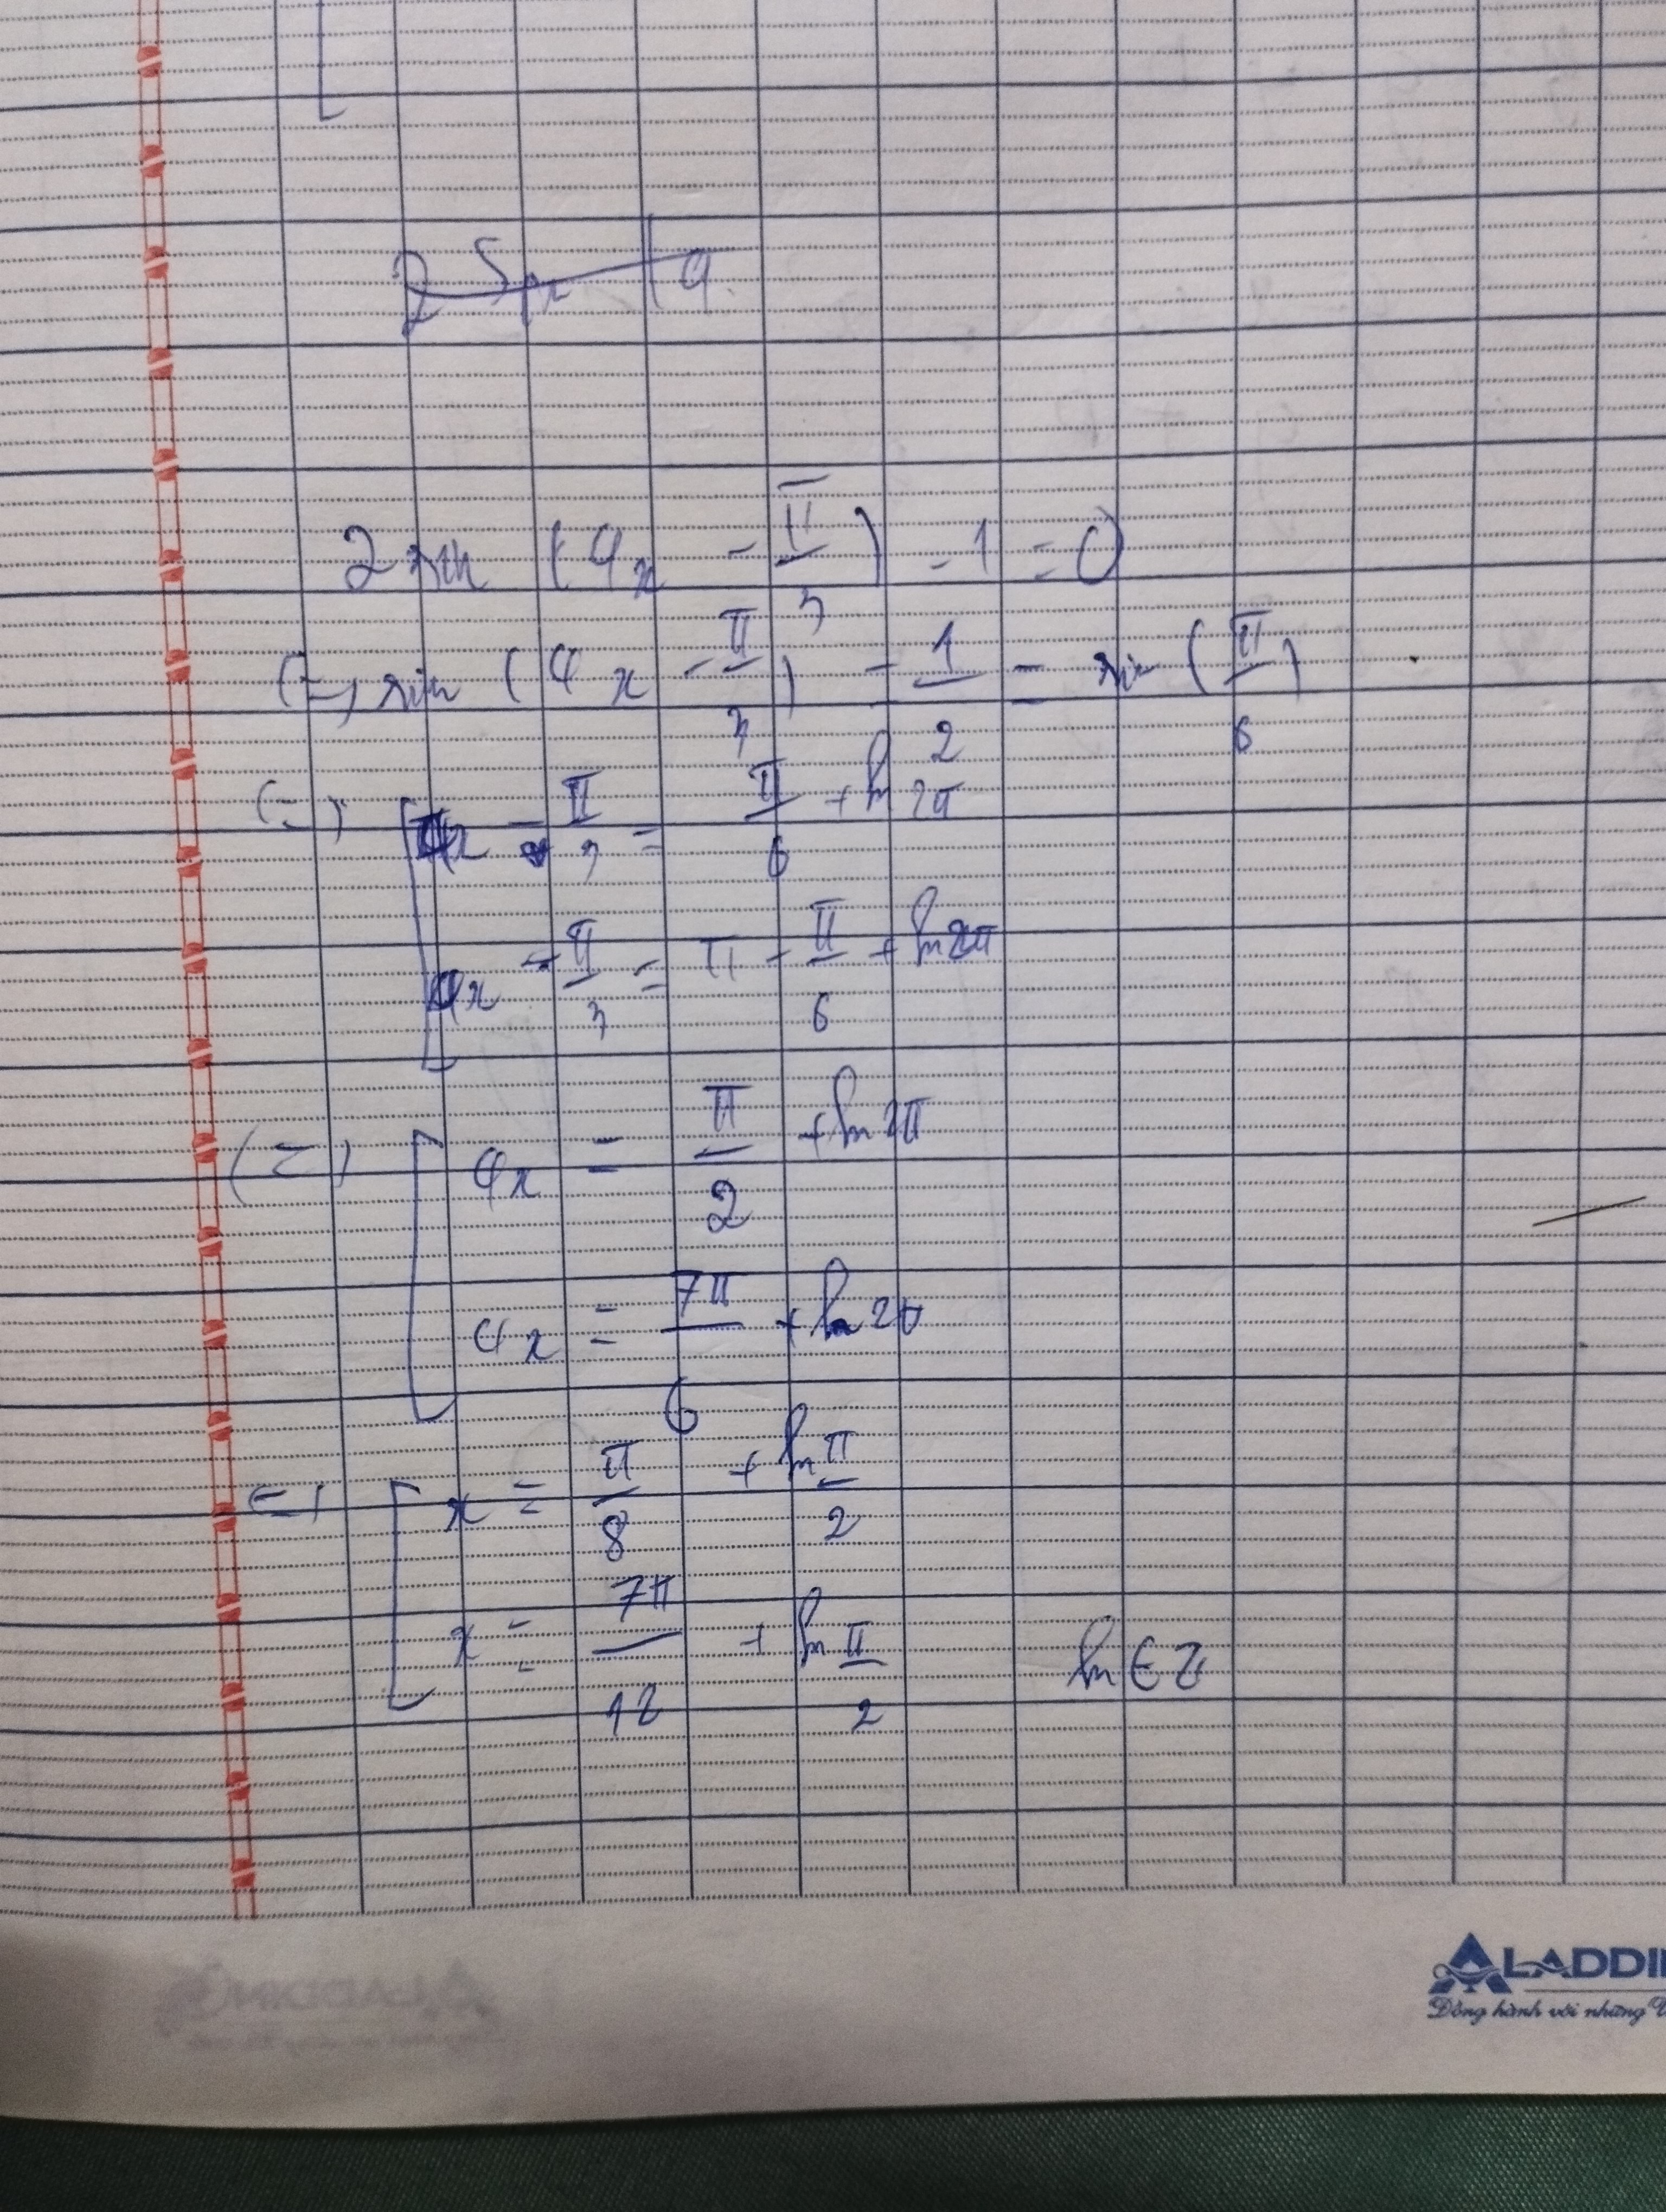 2 sin (4x - π/3) - 1 = 0
(=) sin (4x - π/3) = 1/2 = sin (π/6)
(=) [ 4x - π/3 = π/6 + k2π
4x - π/3 = π - π/6 + k2π
(=) [ 4x = π/2 + k2π
4x = 7π/6 + k2π
(=) [ x = π/8 + kπ/2
x = 7π/12 + kπ/2 k ∈ Z
ALADDI
Đồng hành với những